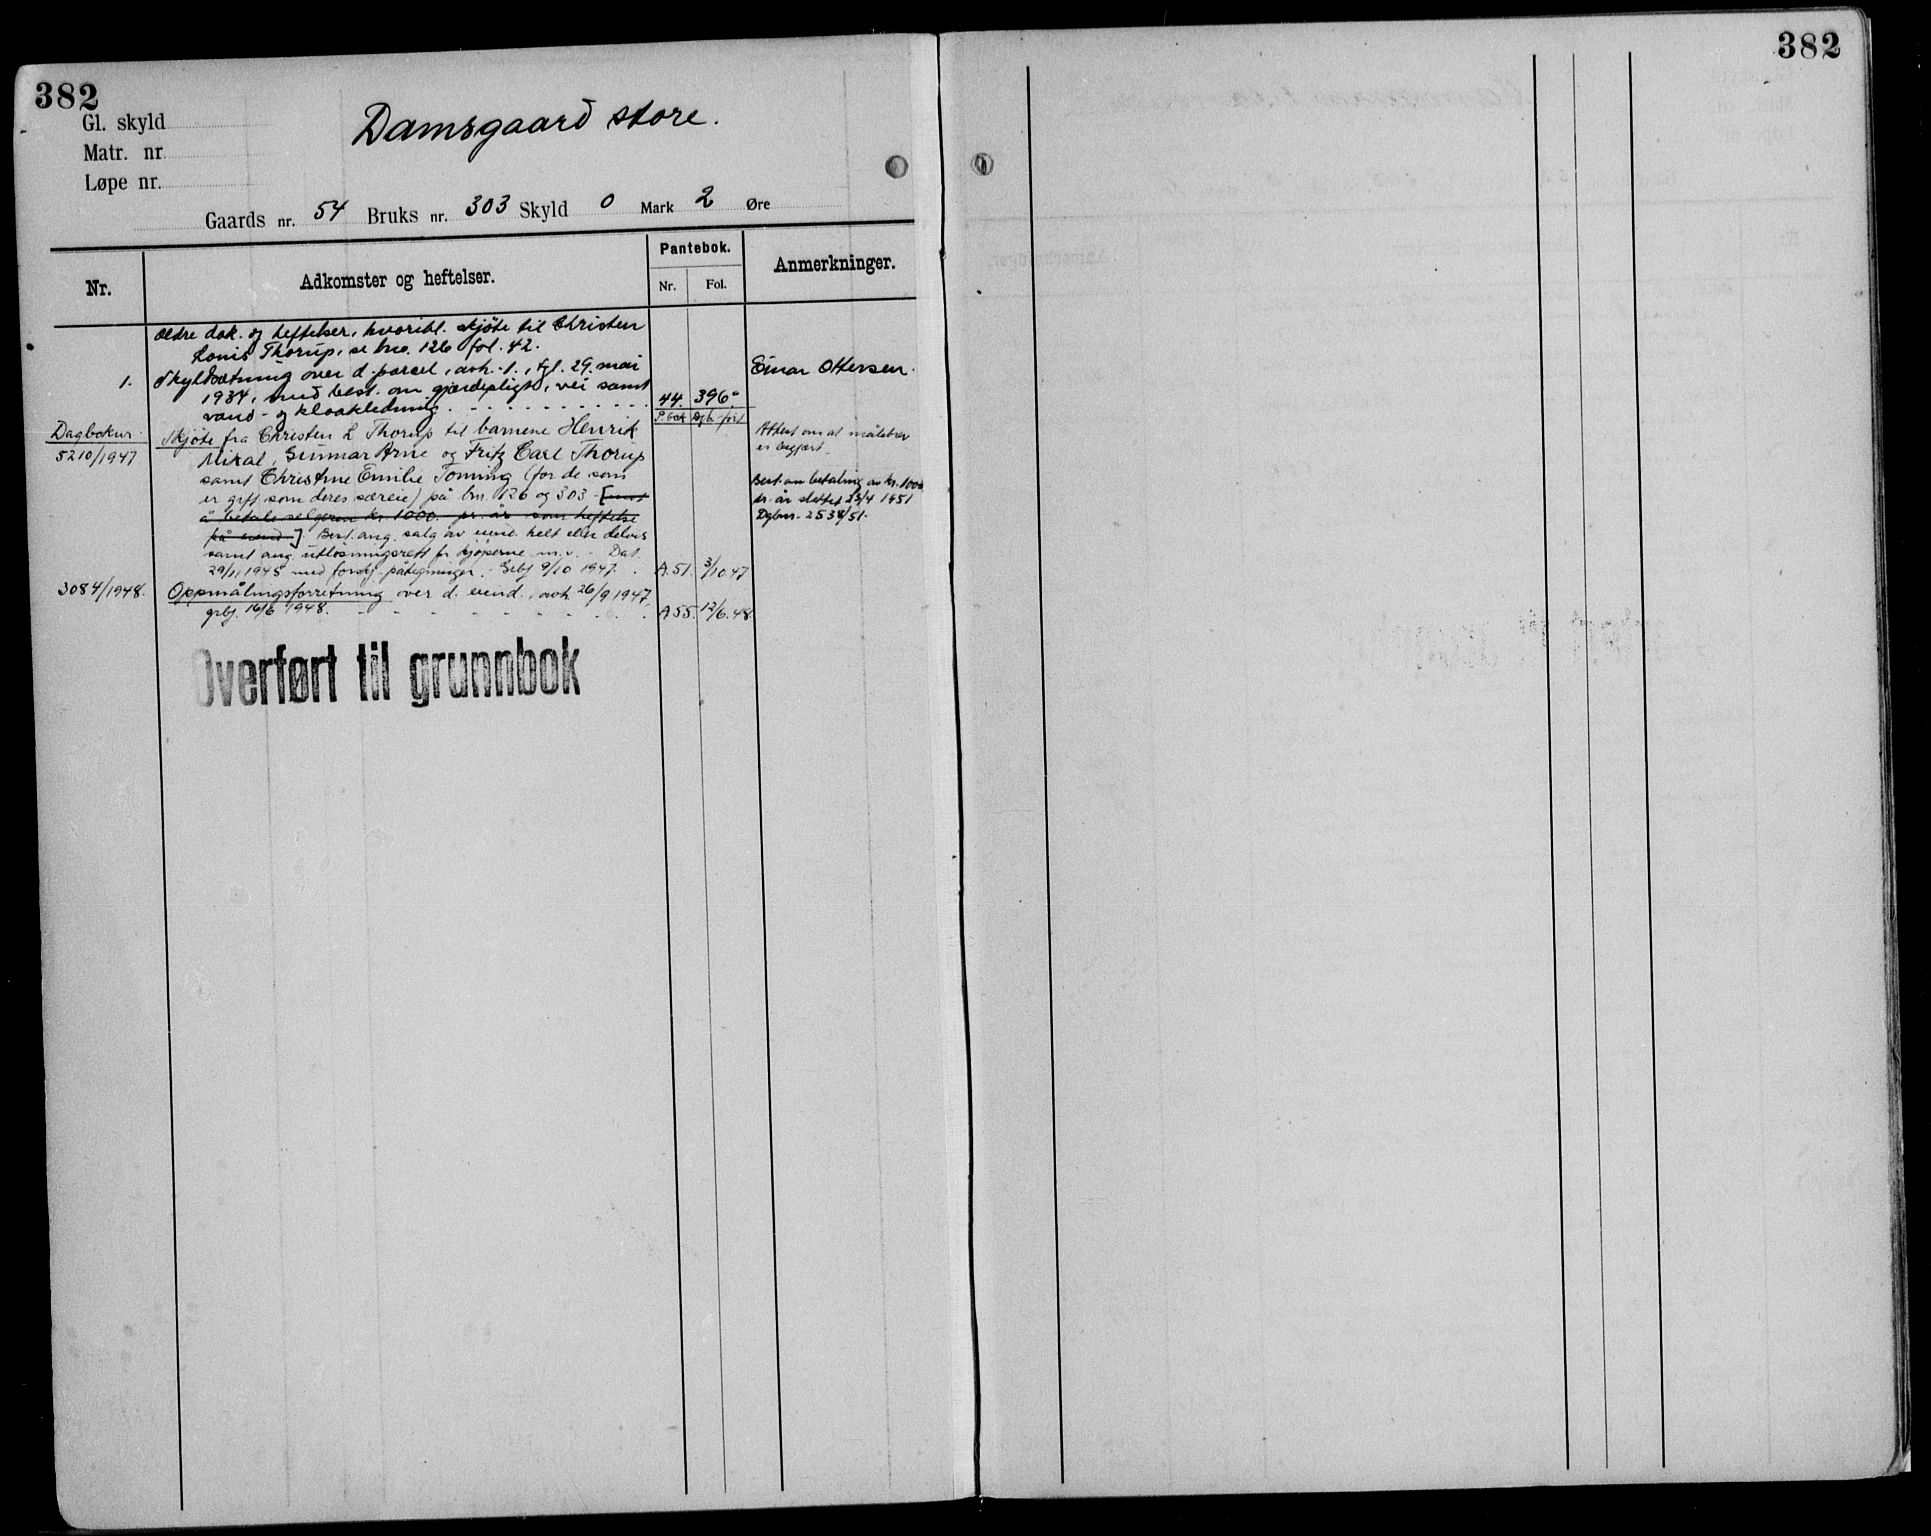 382
382
Gl. skyld
Matr. nr.
Løpe nr.
Damsgaard store.
Gaards nr. 54 Bruks nr. 303 Skyld 0 Mark 2 Øre
Nr.
Adkomster og heftelser.
Pantebok.
Nr. Fol.
Anmerkninger.
Ældre dok. og heftelser, hvoribl. skjöte til Christen
Louis Thorup, se bno. 126 fol. 42.
1. Skyldsætning over d. parcel, avh. 1., tgl. 29. mai
1934, med best. om gjærdepligt, vei samt
vand- og kloakledning 44. 396.
Einar Ottersen.
P.bok Dgb. ført
Dagboknr.
5210/1947
Skjöte fra Christen L Thorup til barnene Henrik
Mikal, Gunnar Arne og Fritz Carl Thorup
samt Christine Emilie Tonning (for de som
er gift som deres særeie) på bnr. 126 og 303 - [mot
å betale selgeren kr. 1000.- pr. år som heftelse
på eiend.] Best. ang. salg av eiend. helt eller delvis
samt ang. utløsningsrett for kjøperne m.v. - Dat.
29/11 1945 med forskj. påtegninger. - Grbf 9/10 1947. A.51. 3/10.47
Attest om at målebrev
er begjært.
Best. om betaling av kr. 1000
pr. år slettet 23/4 1951
Dgbnr. 2538/51.
3084/1948. Oppmålingsforretning over d. eiend., avh. 26/9 1947,
grbf. 16/6 1948. A55. 12/6.48
Overført til grunnbok